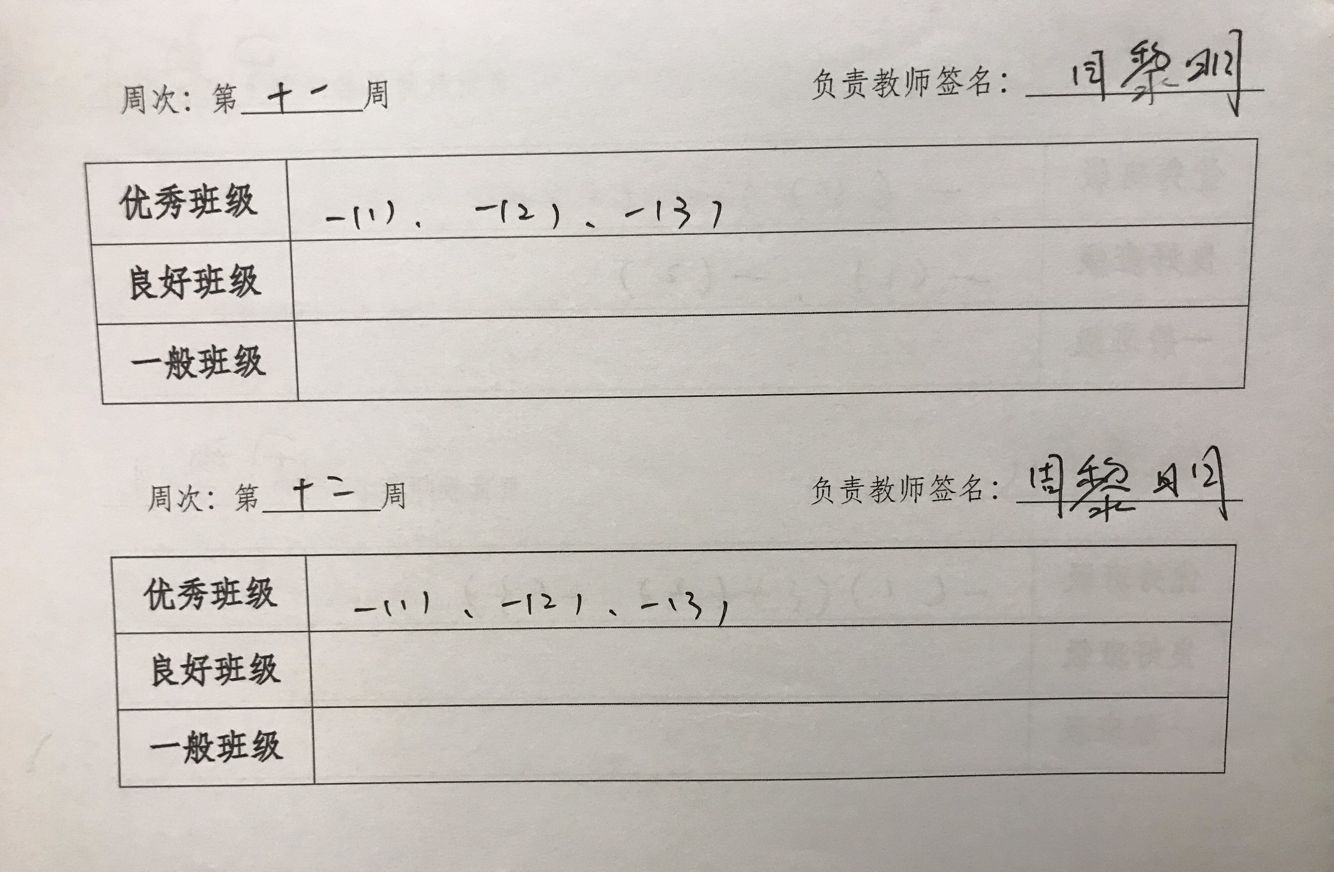 周次：第十一周 负责教师签名：周黎明
优秀班级 一(1)、一(2)、一(3)
良好班级
一般班级
周次：第十二周 负责教师签名：周黎明
优秀班级 一(1)、一(2)、一(3)
良好班级
一般班级